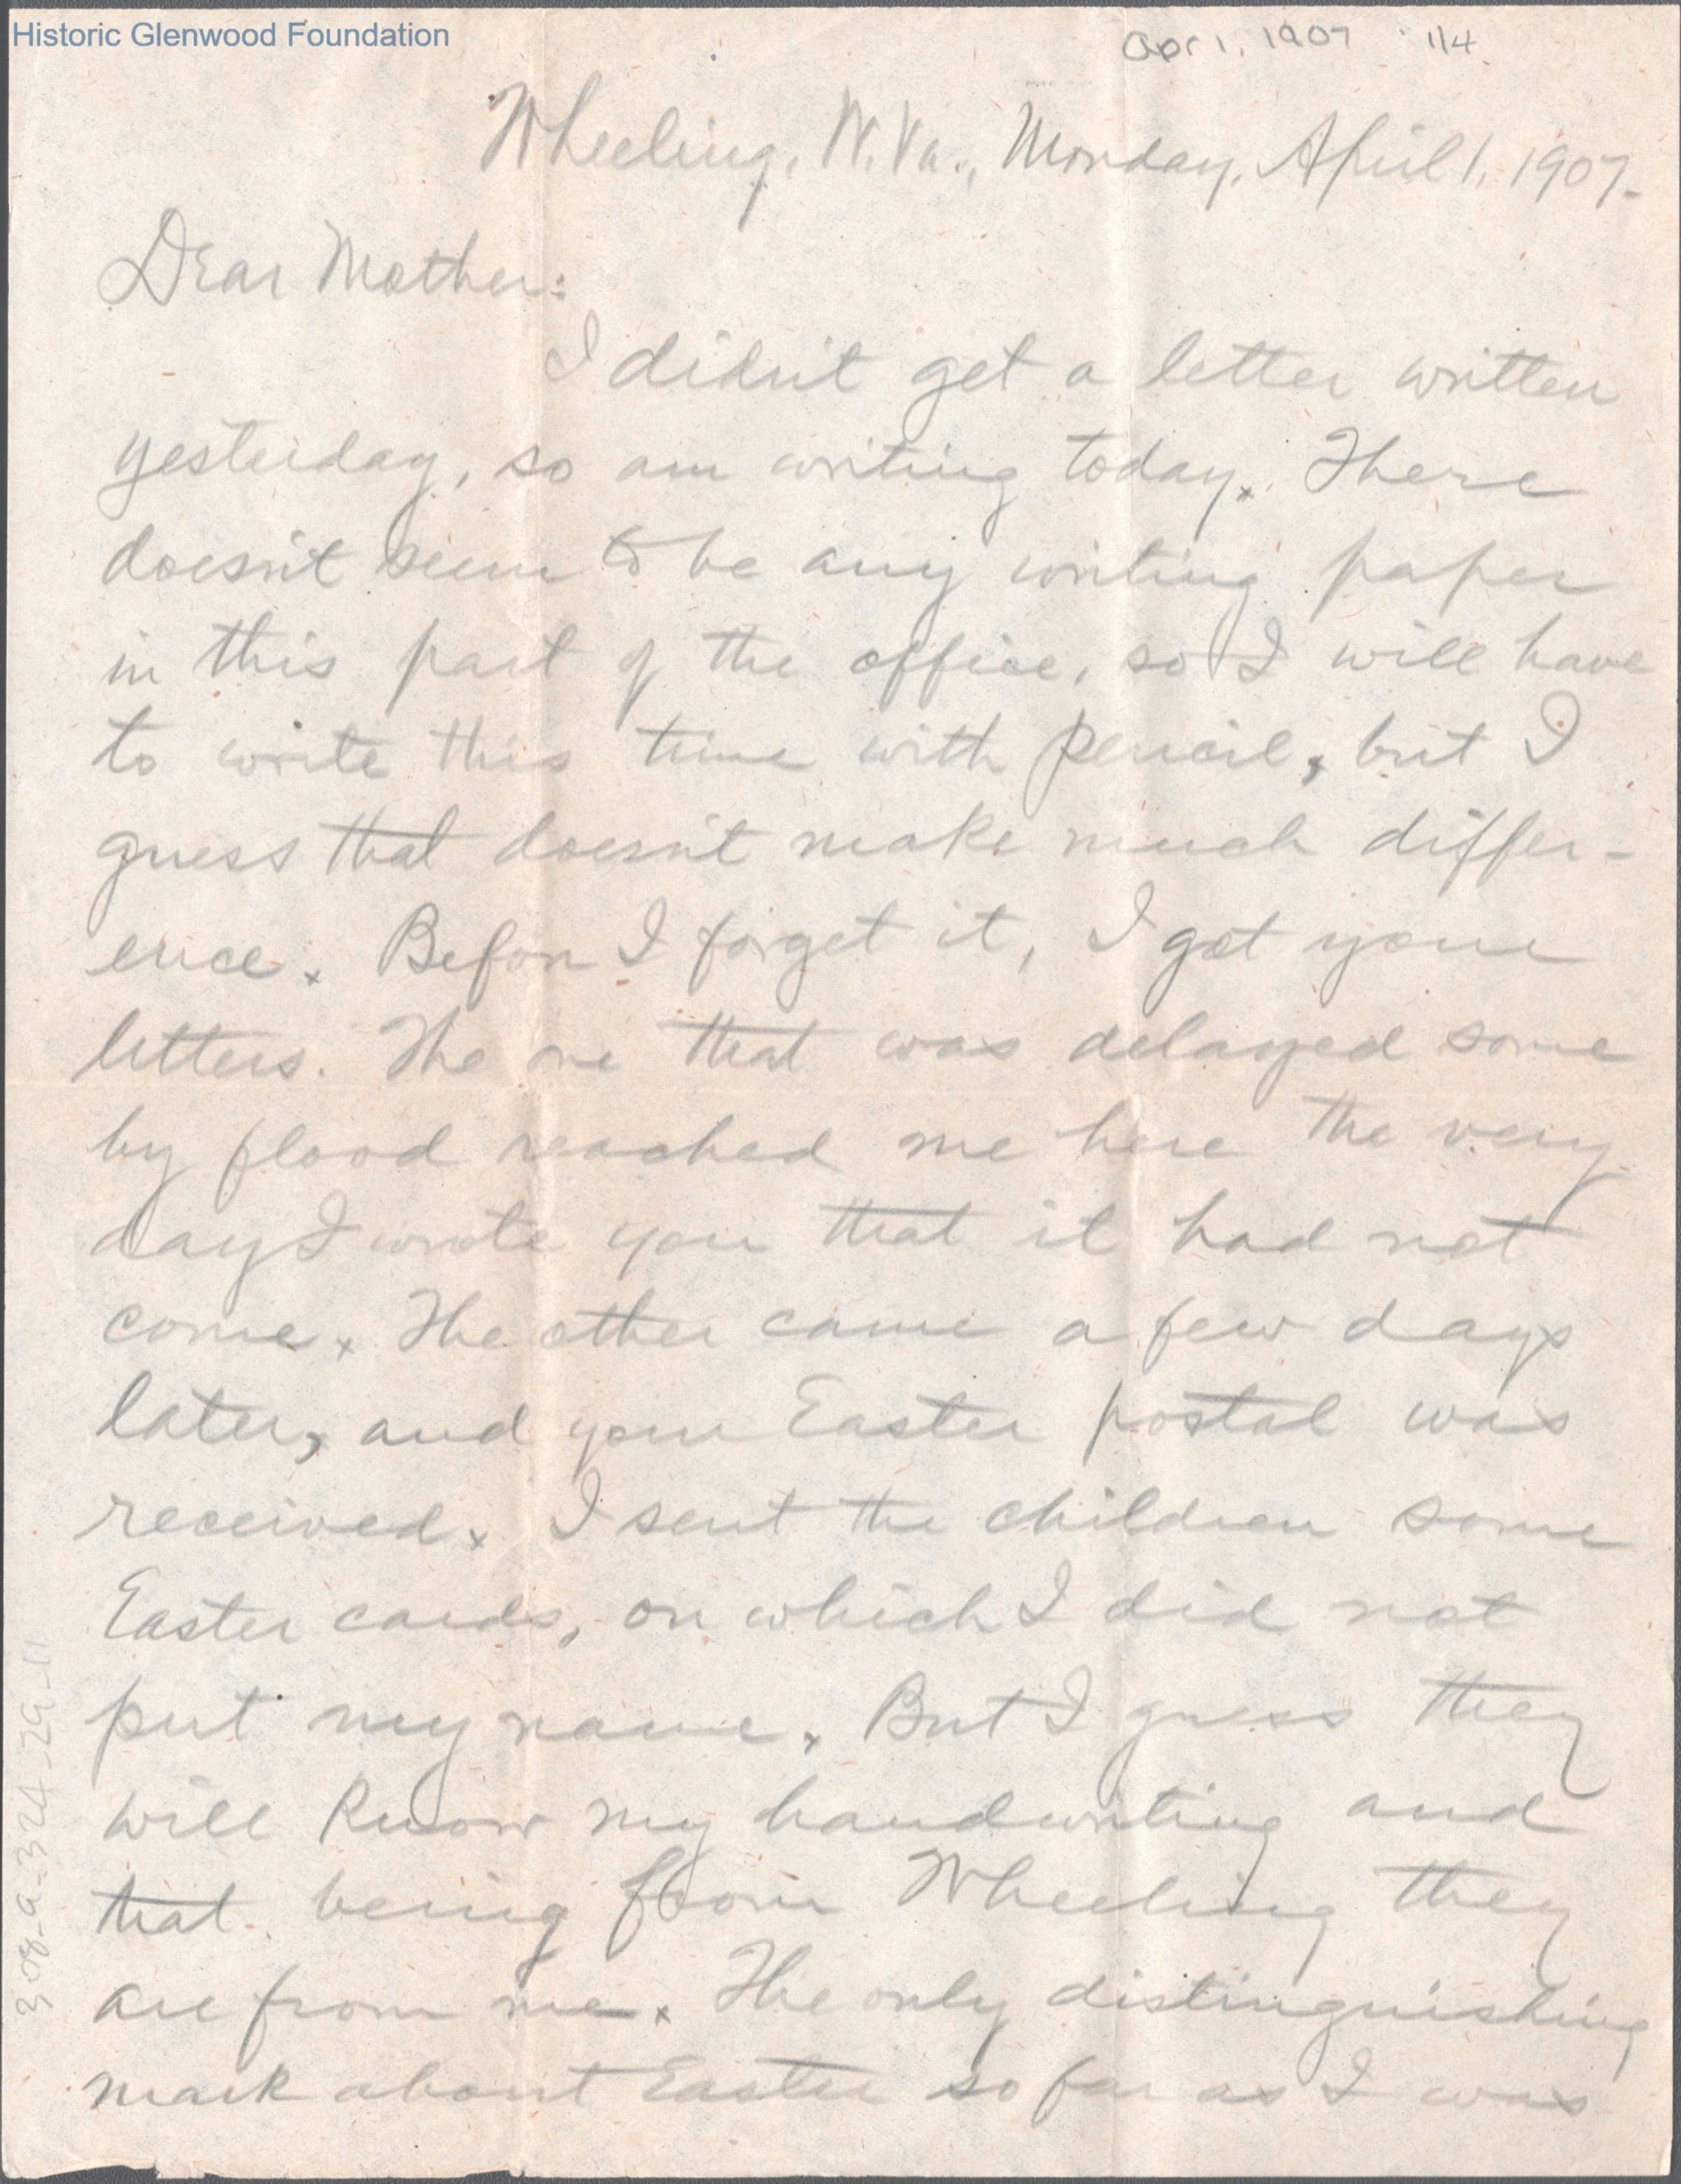 Historic Glenwood Foundation
Apr 1, 1907 1/4
Wheeling, W. Va., Monday, April 1, 1907.
Dear Mother:
I didn't get a letter written
yesterday, so am writing today. There
doesn't seem to be any writing paper
in this part of the office, so I will have
to write this time with pencil, but I
guess that doesn't make much differ-
ence. Before I forget it, I got your
letters. The one that was delayed some
by flood reached me here the very
day I wrote you that it had not
come. The other came a few days
later, and your Easter postal was
received. I sent the children some
Easter cards, on which I did not
put my name. But I guess they
will know my handwriting and
that being from Wheeling they
are from me. The only distinguishing
mark about Easter so far as I was
308-a-324-29-11